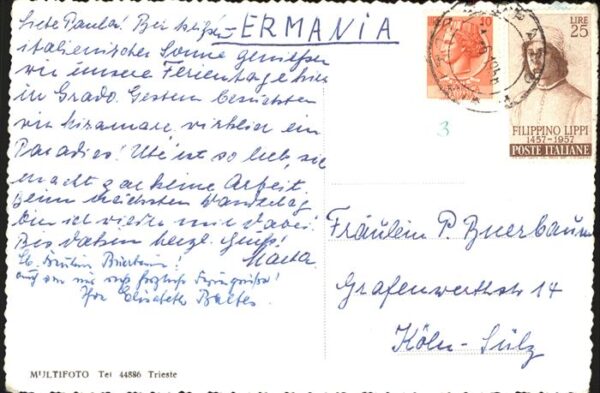 Liebe Paula! Bei
GERMANIA
italienischer Sonne genießen
wir unsere Ferientage hier
in Grado. Gestern besuchten
wir Miramare, wirklich ein
Paradies! Ute ist so lieb, sie
macht gar keine Arbeit.
Beim nächsten Wandertag
bin ich wieder mit dabei.
Bis dahin herzl. Grüße!
Marta
auch von mir recht herzliche
Ihre Elisabeth Baltes
3
LIRE
25
FILIPPINO LIPPI
1457-1957
POSTE ITALIANE
Fräulein P.
Grafenwerthstr 14
Köln-Sülz
MULTIFOTO Tel 44886 Trieste